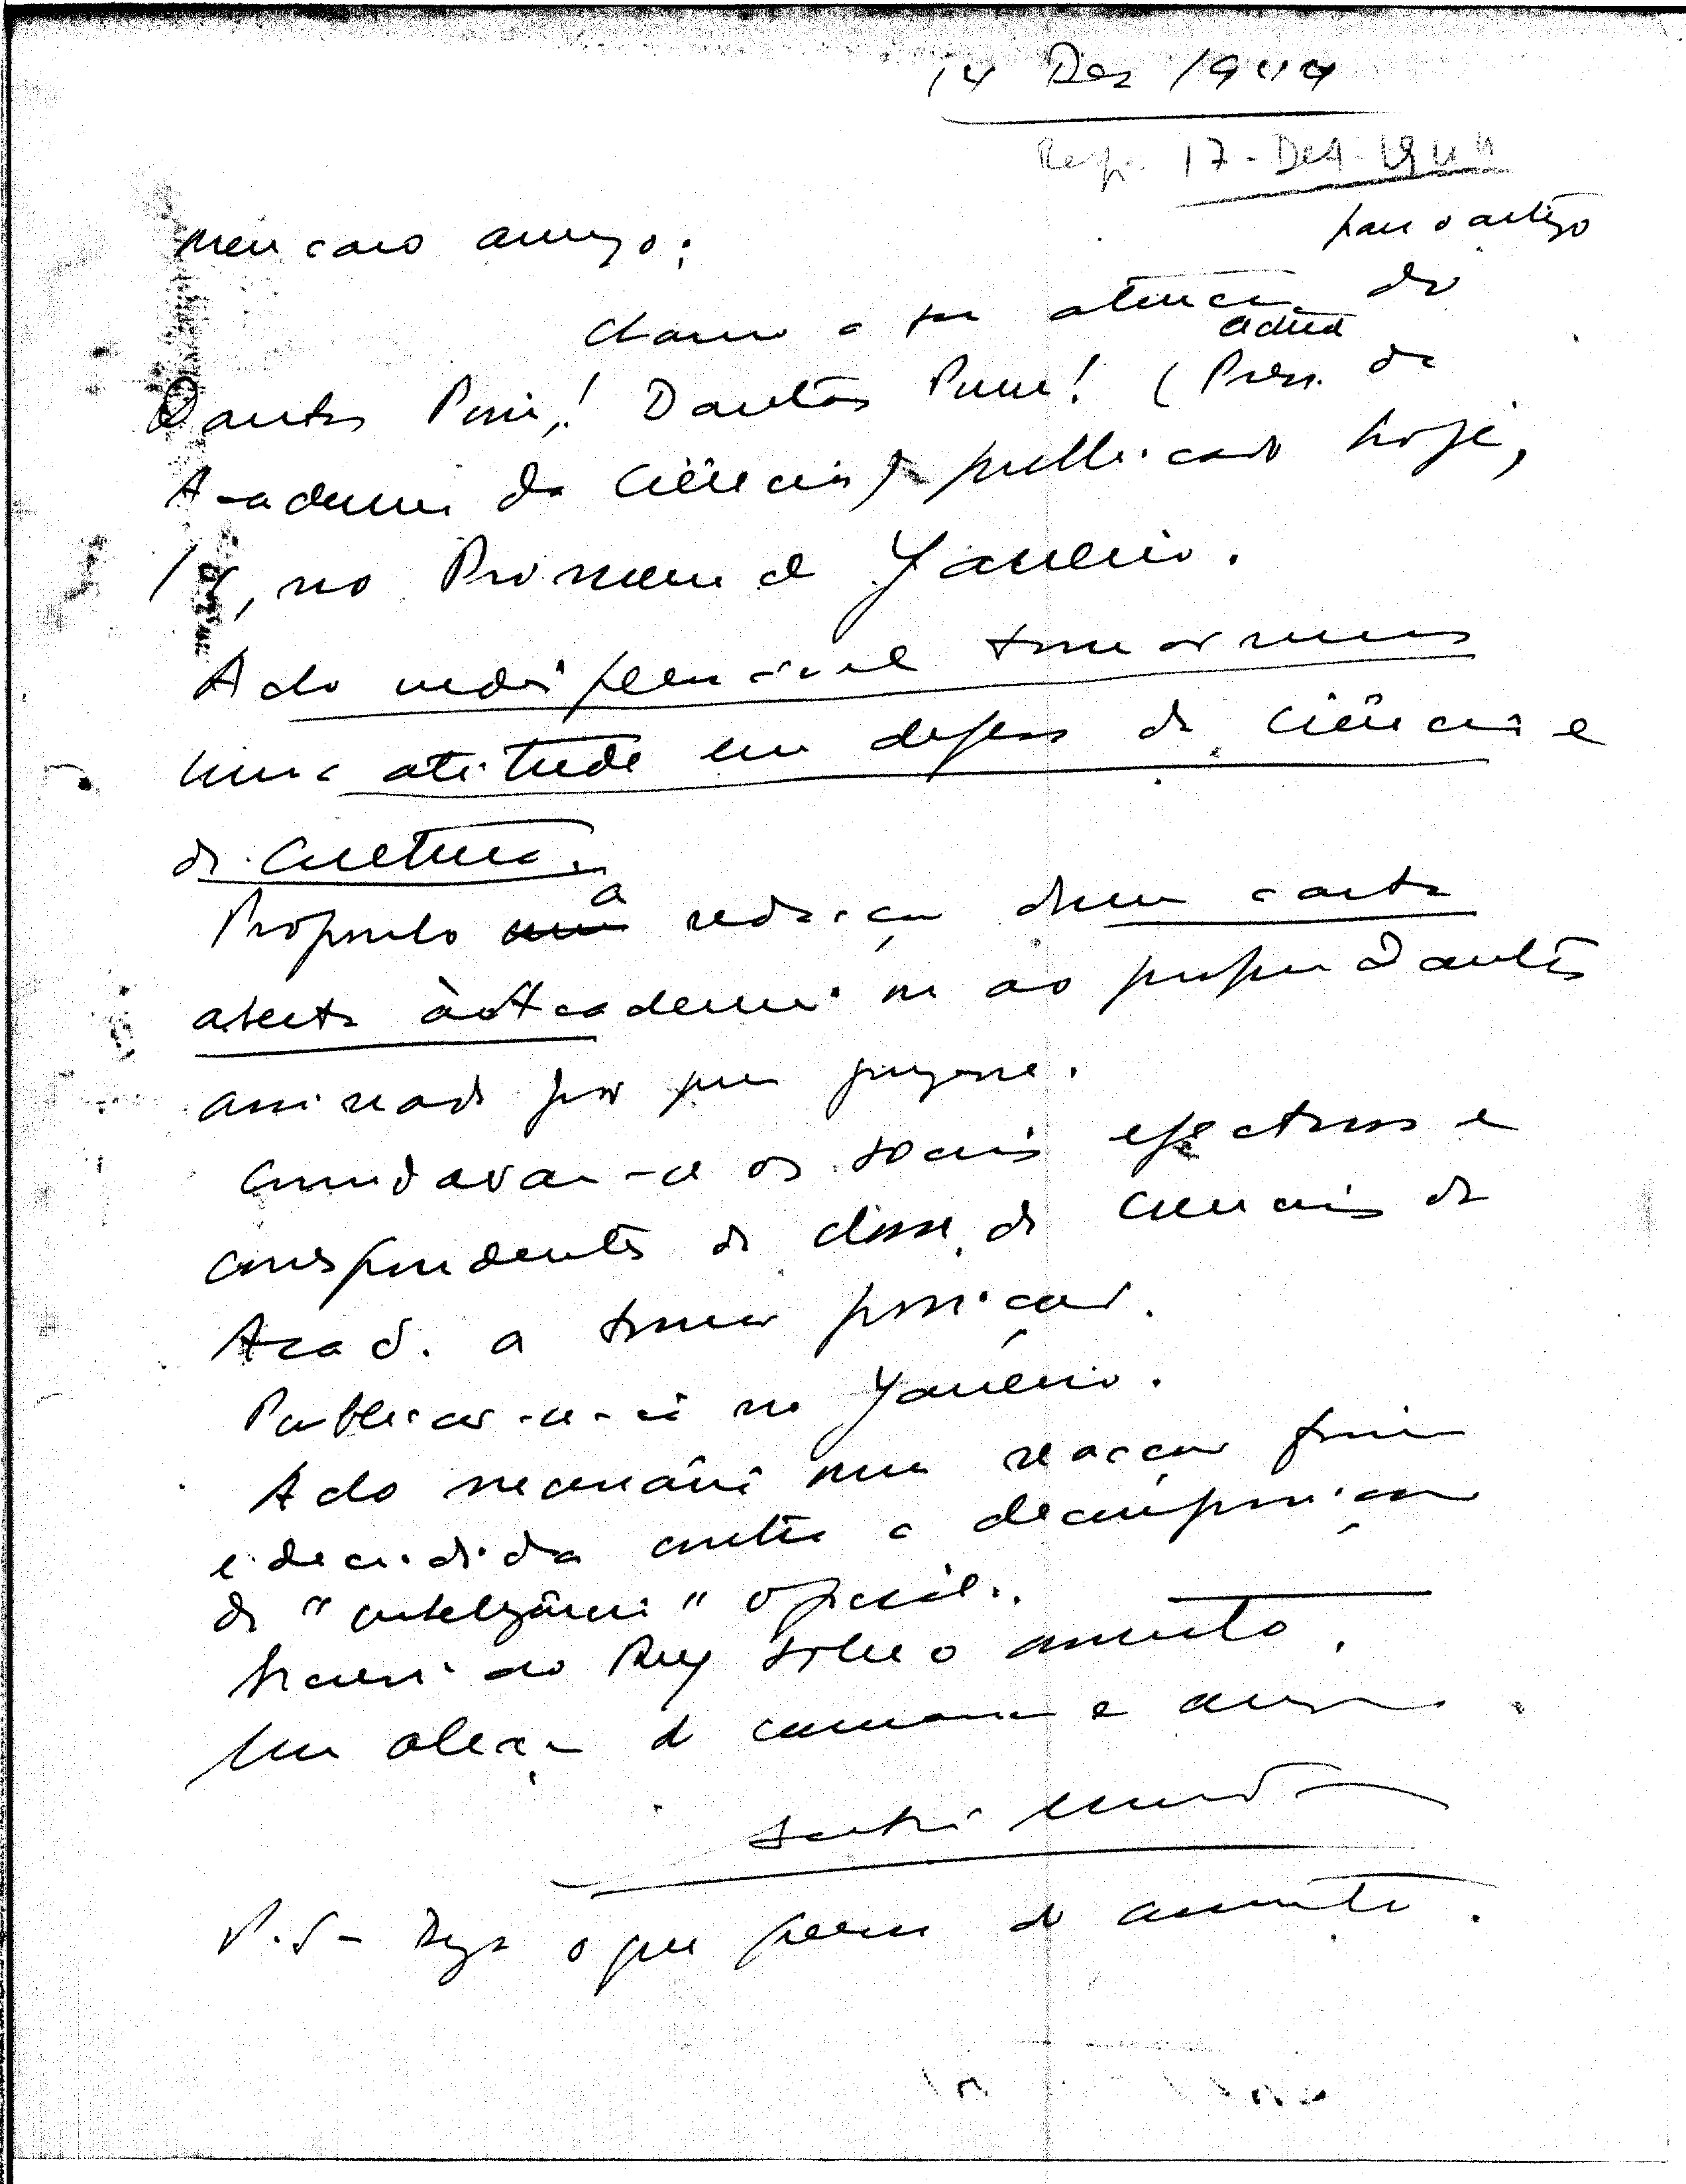 14 Dez 1944
Resp. 17-Dez-1944
Meu caro amigo:
Chamo a sua atenção para o artigo do
Dantas Pum! Dantas Pum! (Pres. actual da
Academia das Ciências) publicado hoje,
14, no Primeiro de Janeiro.
Acho indispensável tomarmos
uma atitude em defesa da Ciência e
da Cultura.
Proponho a redacção duma carta
aberta à Academia ou ao próprio Dantas
assinada por quem quizesse.
Convidavam-se os socios efectivos e
correspondentes da classe de ciencias da
Acad. a tomar posição.
Publicar-se-ia no Janeiro.
Acho necessária uma reacção firme
e decidida contra a decomposição
da "inteligência" oficial.
Escrevi ao Ruy sobre o assunto.
Um abraço do camarada e amigo
P.S- Diga o que pensa do assunto.